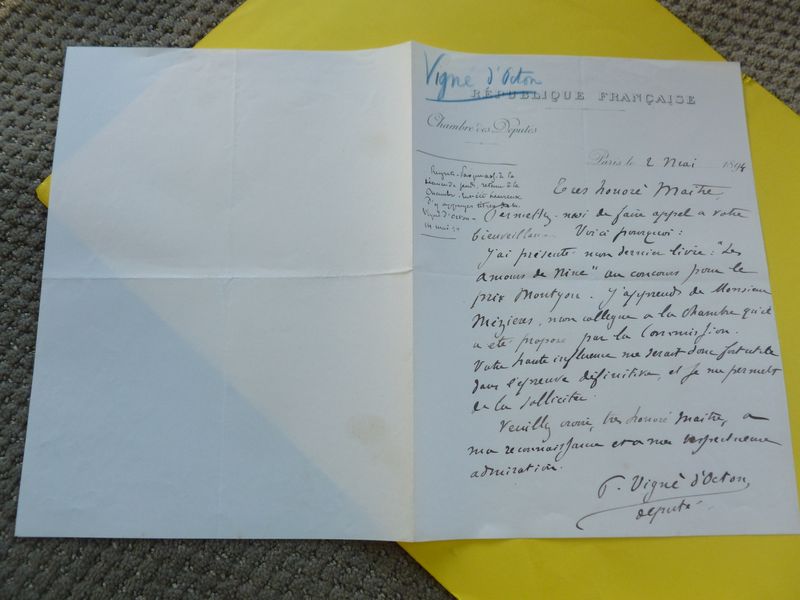 Vigné d'Octon
RÉPUBLIQUE FRANÇAISE
Chambre des Députés
Paris le 2 Mai 1894
Très honoré Maître,
Permettez-moi de faire appel à votre
bienveillance. Voici pourquoi :
J'ai présenté mon dernier livre : "Les
amours de Nine" au concours pour le
prix Montyon. J'apprends de Monsieur
Mézières, mon collègue à la Chambre qu'il
a été proposé par la Commission.
Votre haute influence me serait donc fort utile
dans l'épreuve définitive, et je me permets
de la solliciter.
Veuillez croire, très honoré Maître, à
ma reconnaissance et à ma respectueuse
admiration.
P. Vigné d'Octon
député.
de la
séance de jeudi, retenu à la
Chambre heureux
d'y
Vigné d'Octon